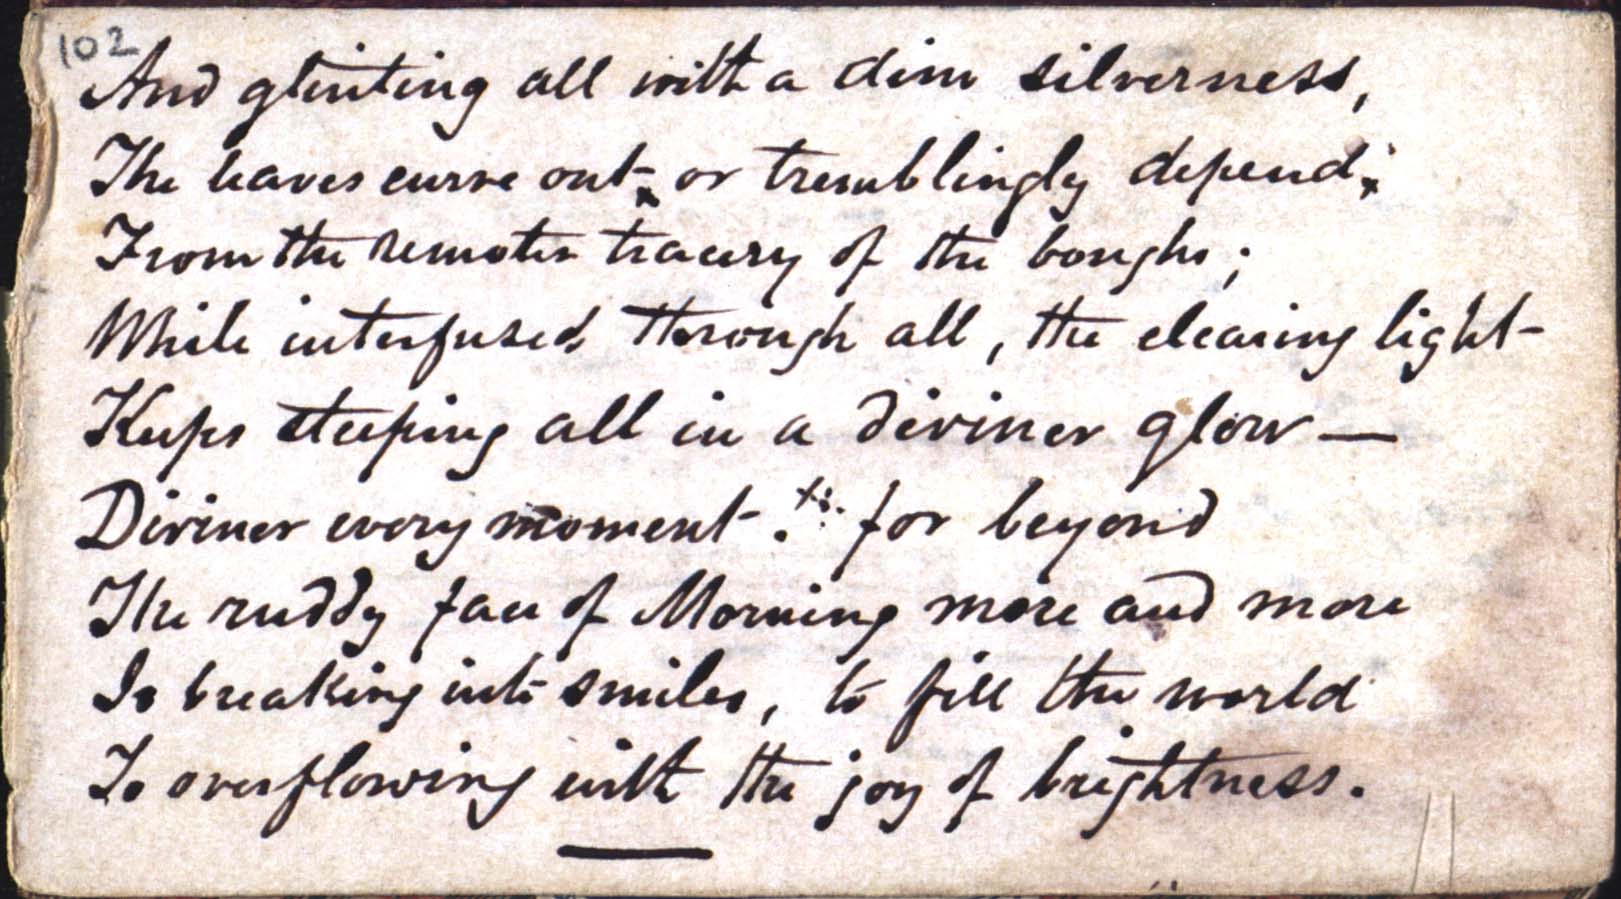 102
And glinting all with a dim silverness,
The leaves curve out, or tremblingly depend,
From the remoter tracery of the boughs;
While interfused through all, the clearing light
Keeps steeping all in a diviner glow—
Diviner every moment. for beyond
The ruddy face of Morning more and more
Is breaking into smiles, to fill the world
To overflowing with the joy of brightness.